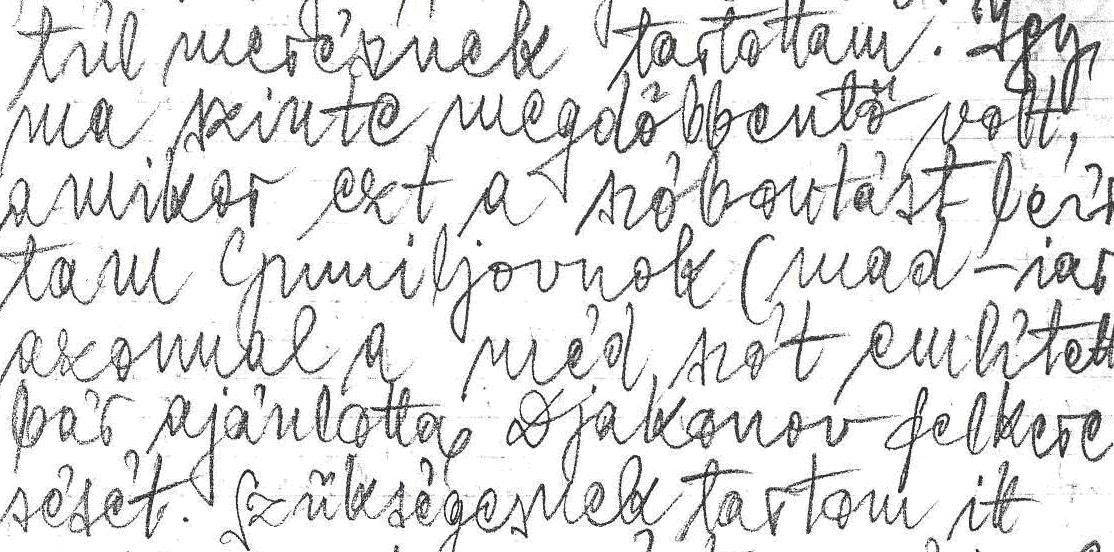 túl merésznek tartottam. Így,
ma szinte megdöbbentő volt,
amikor ezt a szóbontást leír
tam Gumiljovnak (mad-iar
azonnal a méd szót említett
bár ajánlotta, Djakonov felkere
sését. Szükségesnek tartom itt